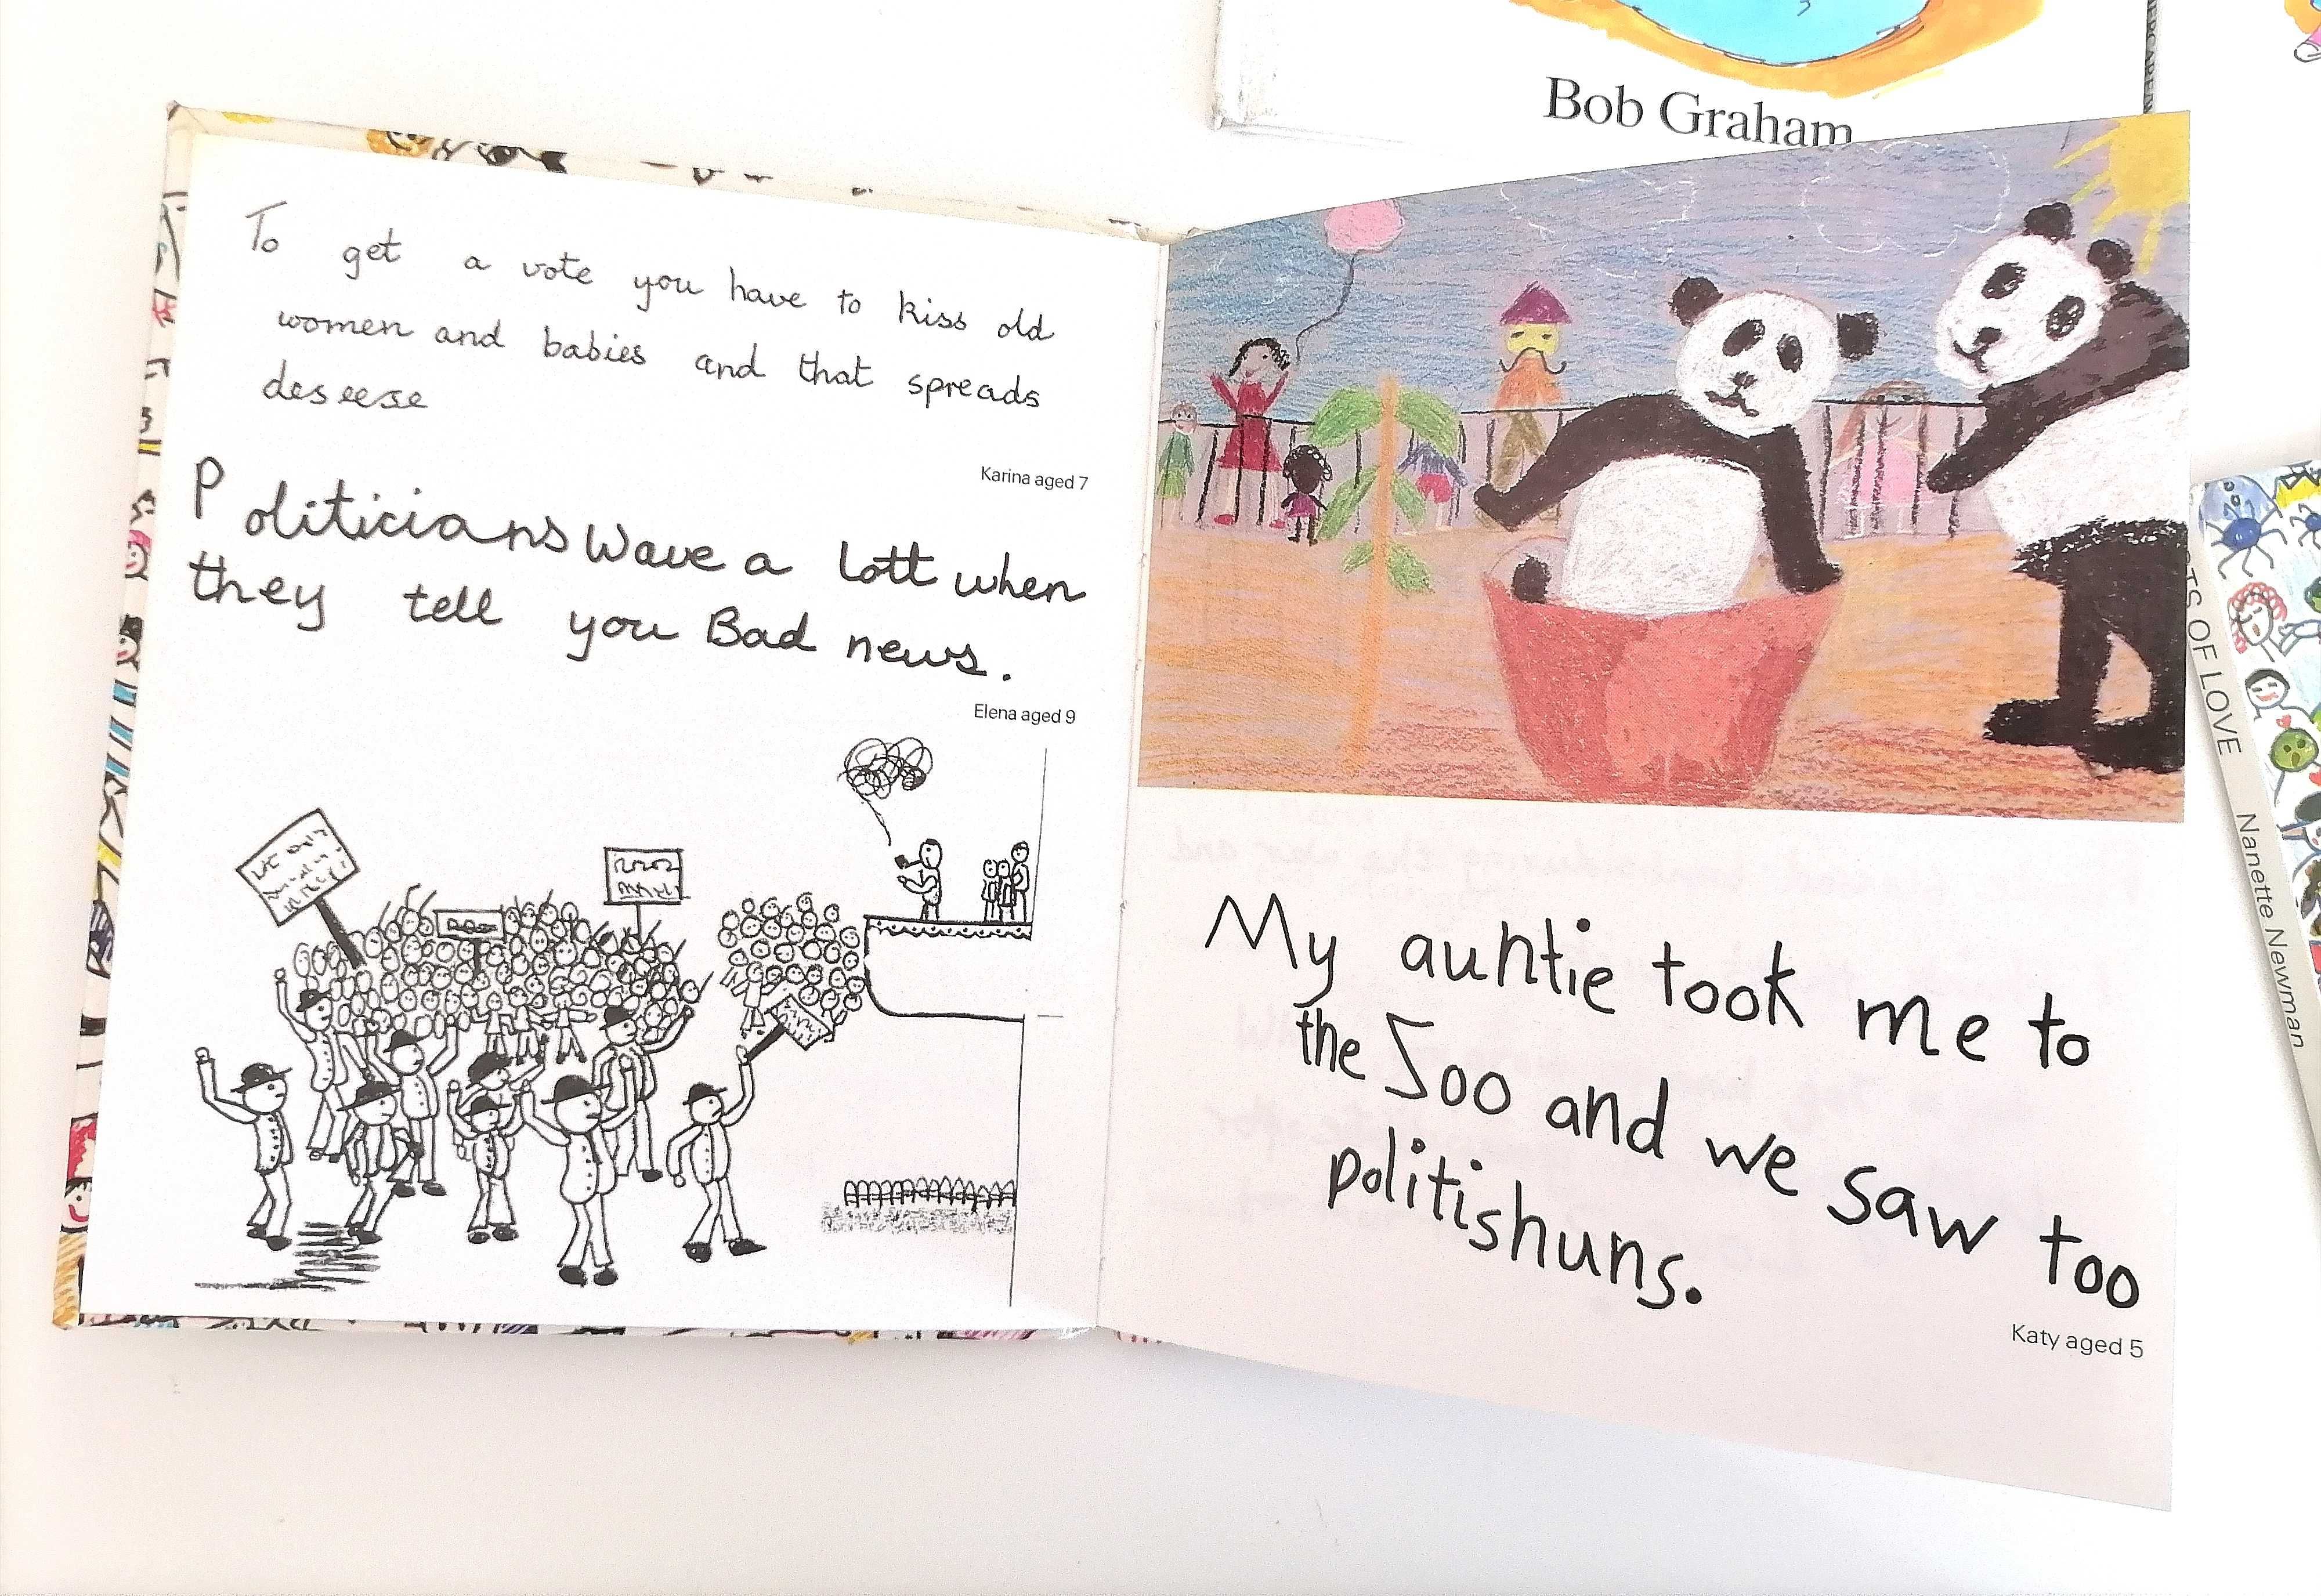 Bob Graham
To get a vote you have to kiss old
women and babies and that spreads
deseese
Karina aged 7
Politicians Wave a lott when
they tell you Bad news.
Elena aged 9
My auntie took me to
the Zoo and we saw too
politishuns.
Katy aged 5
TS OF LOVE Nanette Newman